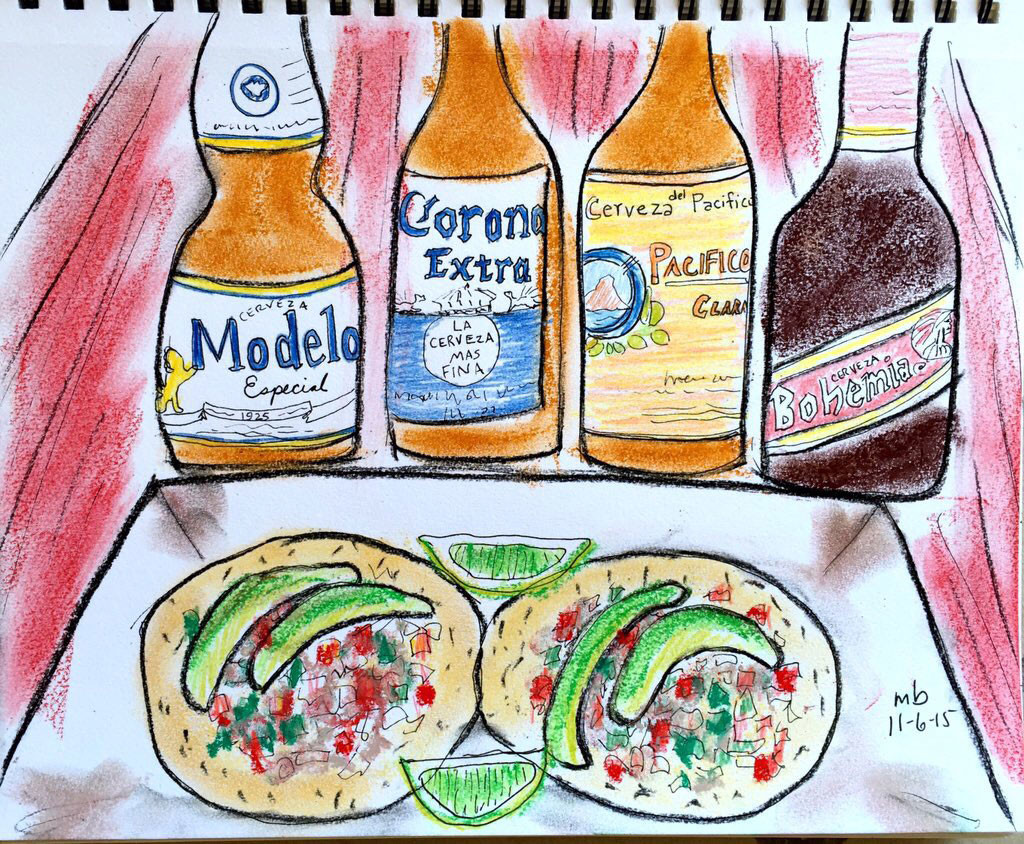 CERVEZA
Modelo
Especial
1925
Corona
Extra
LA
CERVEZA
MAS
FINA
Cerveza del Pacifico
PACIFICO
CLARA
CERVEZA
Bohemia
mb
11-6-15